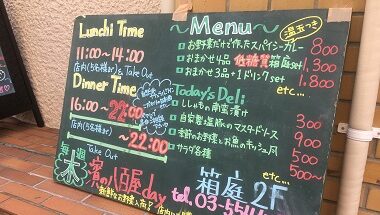 Lunch Time
11:00〜14:00
店内(5名様まで) & Take Out
Dinner Time
16:00〜22:00
店内(5名様まで)
〜22:00
Take Out
毎週
木
夜の八百屋day
新鮮なお野菜入荷!
〜Menu〜
温玉つき
お野菜だけで作ったスパイシーカレー 800
おまかせ4品 低糖質箱庭set 1,300
おまかせ3品+1ドリンクset 1,800
etc...
Today's Deli
ししゃもの南蛮漬け 300
自家製塩豚のマスタードソース 900
季節のお野菜とお魚のキッシュ風 500
サラダ各種
etc...
箱庭 2F
tel.03-554